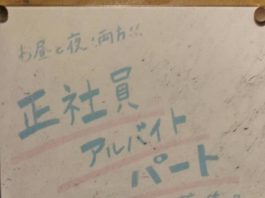 お昼と夜、両方!!
正社員
アルバイト
パート